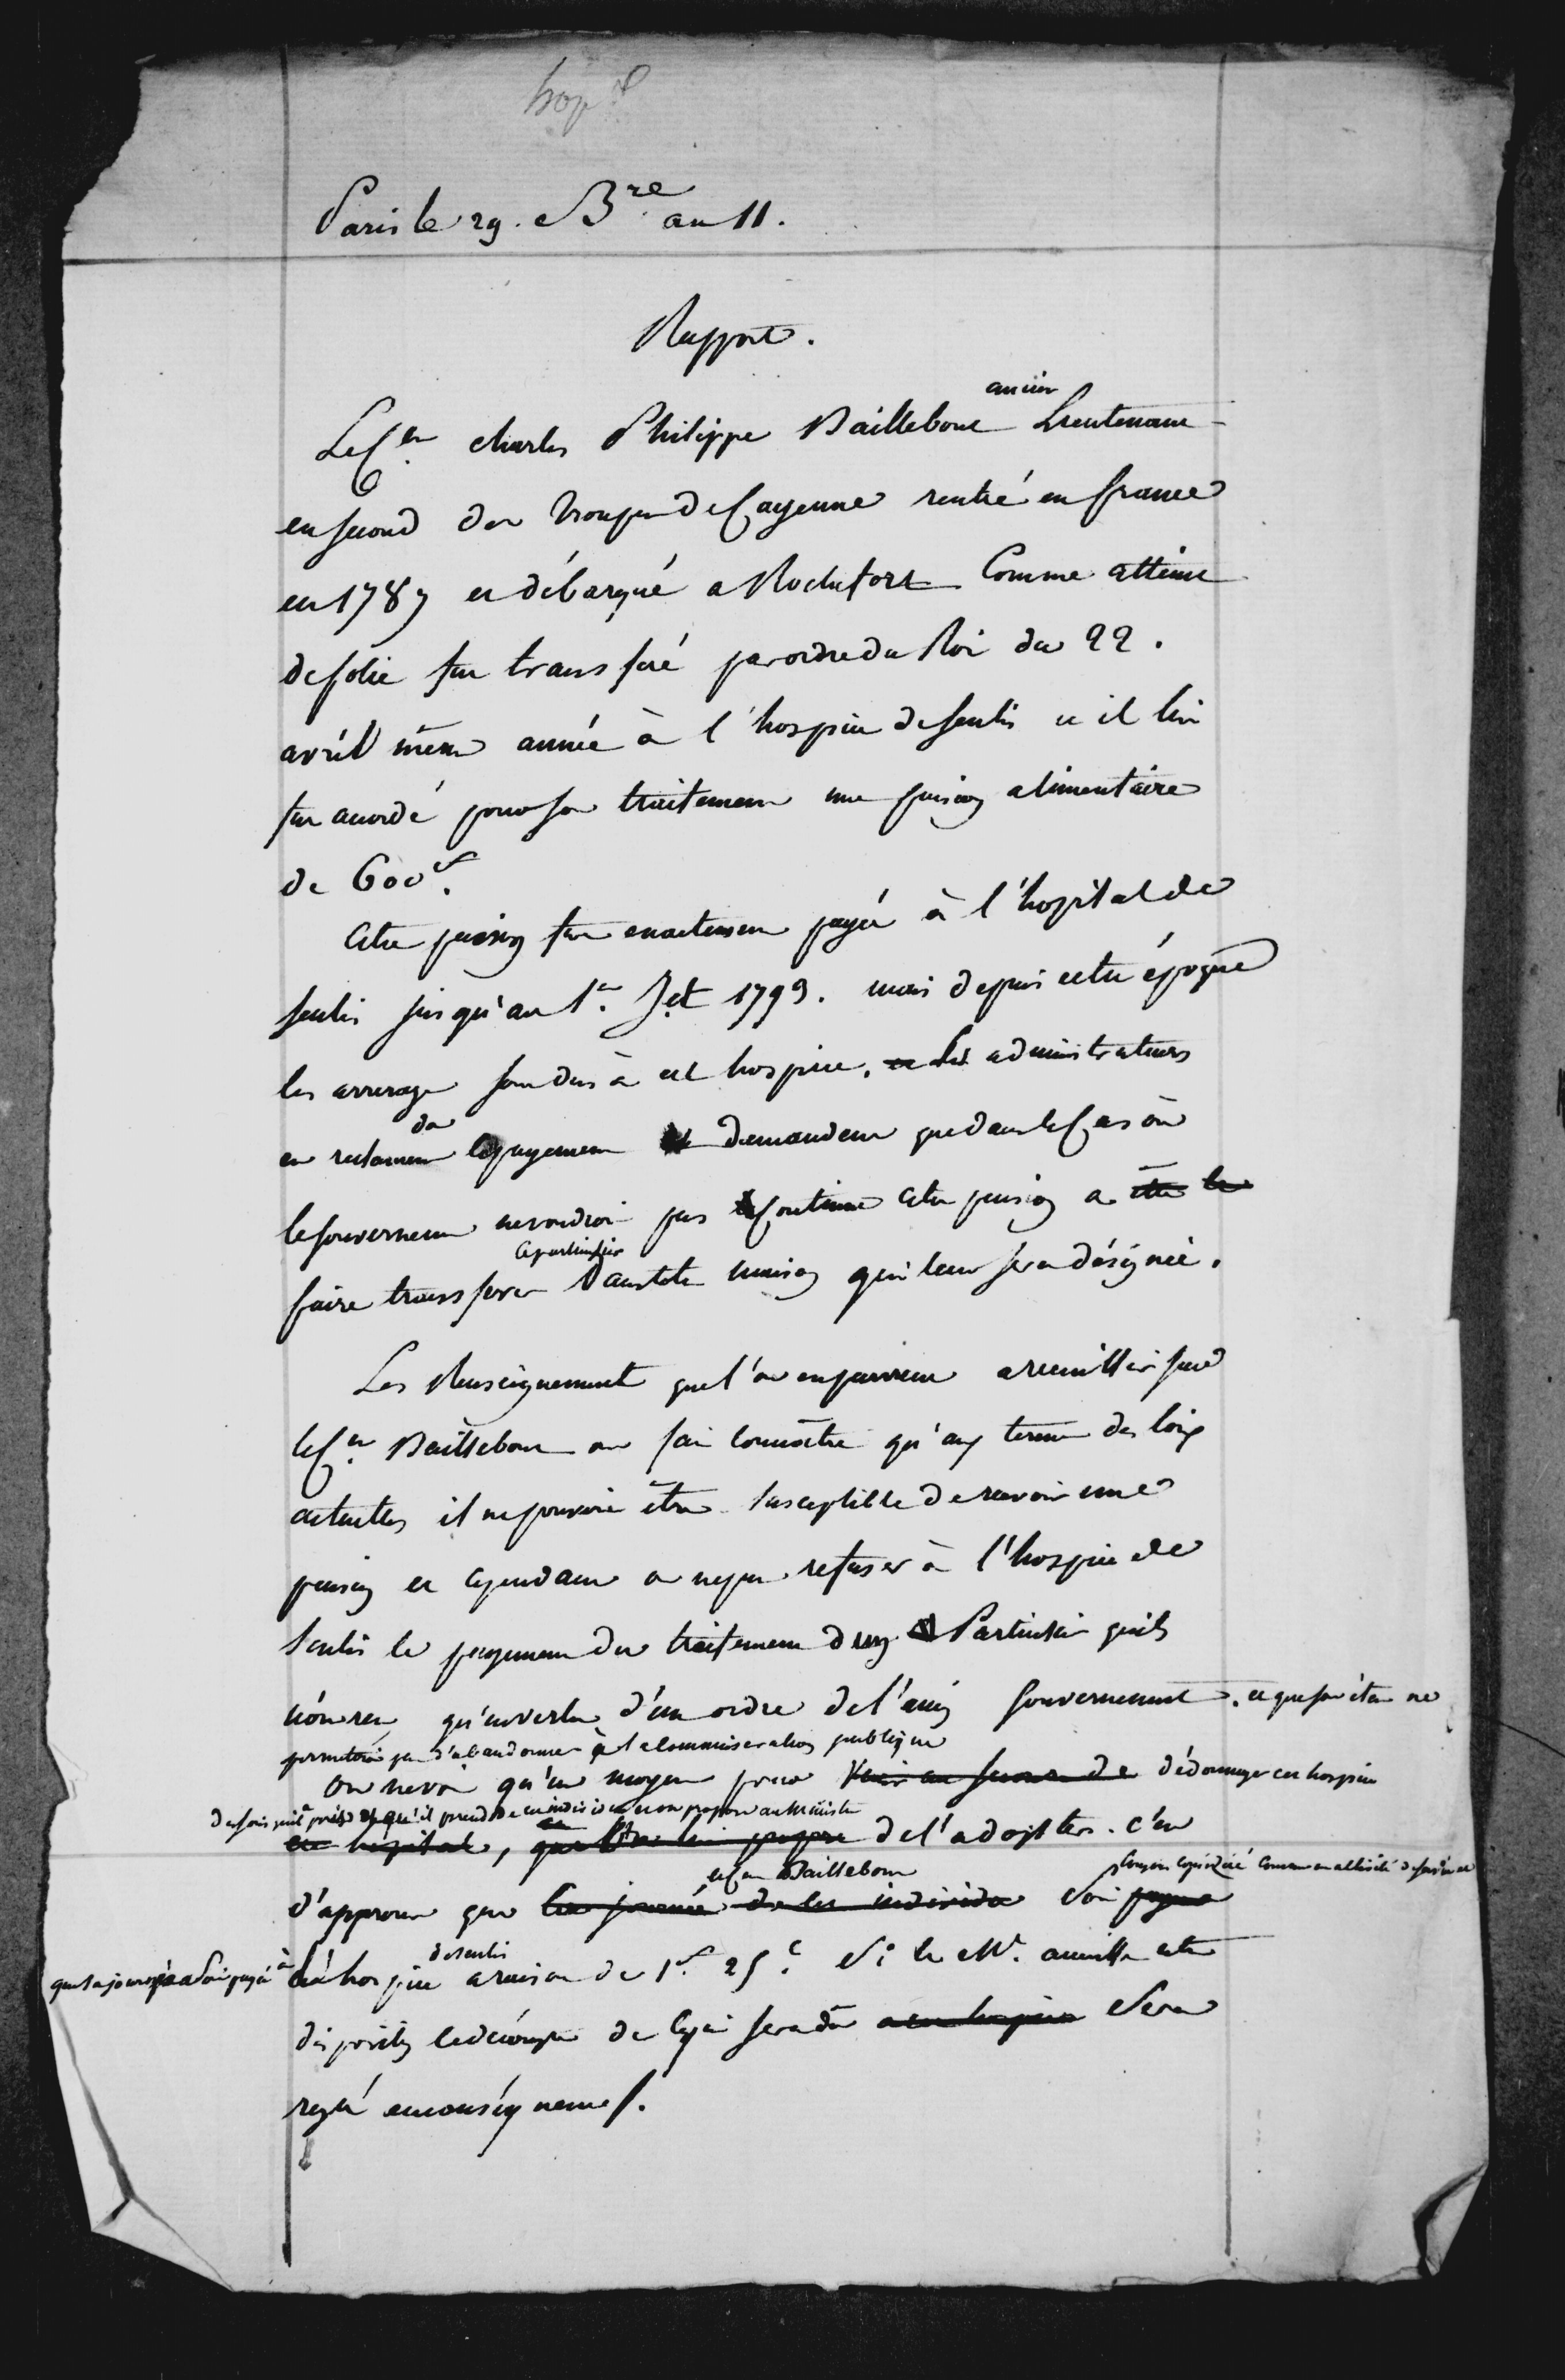 hop.al
Paris le 29. Bre an 11.
Rapport.
ancien
Le Cen Charles Philippe Baillebout Lieutenant
en second des troupes de Cayenne rentré en france
en 1787 et débarqué a Rochefort Comme atteint
de folie fut transféré par ordre du Roi du 22.
avril même année à l'hospice de senlis et il lui
fut accordé pour son traitement une pension alimentaire
de 600ᶠ.
Cette pension fut exactement payée à l'hopital de
senlis jusqu'au 1er Jet 1793. mais depuis cette époque
les arrerages sont dus à cet hospice. et Les administrateurs
en reclament le payement demandent que dans le Cas où
le Gouvernement ne voudroit pas Continuer cette pension a
ce particulier
faire transferer dans telle maison qui leur sera désignée.
Les Renseignements que l'on en parvenu a recueillir sur
le Cen Baillebout ont fait connoitre qu'aux termes des loix
actuelles il ne pouvoit être susceptible de recevoir une
pension et cependant on ne peut refuser à l'hospice de
senlis le payement du traitement d'un Particulier qu'ils
n'ont reçu qu'en vertu d'un ordre de l'ancien Gouvernement. et que son état ne
permettroit pas d'abandonner à la Commiseration publique
On ne voit qu'un moyen pour venir au secours de dédommager cet hospice
des soins qu'il a pris et qu'il prend de cet individu on propose au Ministre
cet hopital, de l'adopter. c'est
le Cen Baillebout
d'approuver que la journée de cet individu soit payée
que sa journée soit payée à
de senlis
l'hospice a raison de 1ᶠ 25c. Si le Mre accueille cette
disposition le décompte de ce qui sera dû a cet hospice sera
reglé en conséquence.